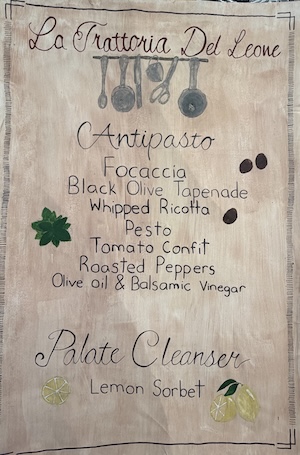 La Trattoria Del Leone
Antipasto
Focaccia
Black Olive Tapenade
Whipped Ricotta
Pesto
Tomato Confit
Roasted Peppers
Olive oil & Balsamic Vinegar
Palate Cleanser
Lemon Sorbet